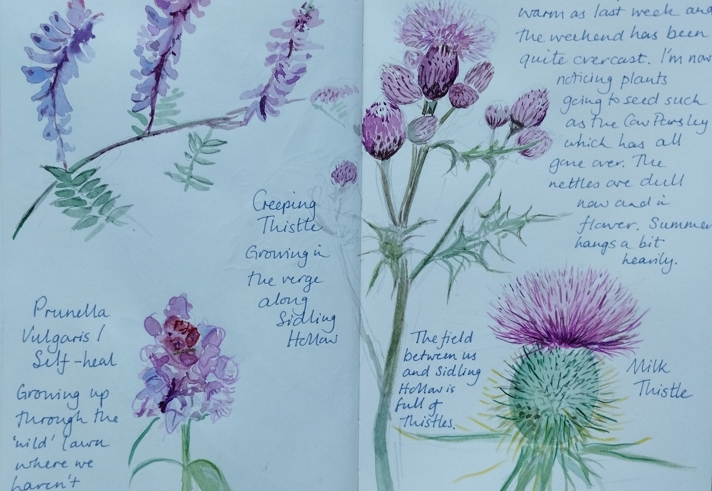 warm as last week and
the weekend has been
quite overcast. I'm now
noticing plants
going to seed such
as the Cow Parsley
which has all
gone over. The
nettles are dull
now and in
flower. Summer
hangs a bit
heavily.
Creeping
Thistle
Growing in
the verge
along
Sidling
Hollow
Prunella
Vulgaris /
Self-heal
Growing up
through the
'wild' lawn
where we
haven't
The field
between us
and Sidling
Hollow is
full of
Thistles.
Milk
Thistle